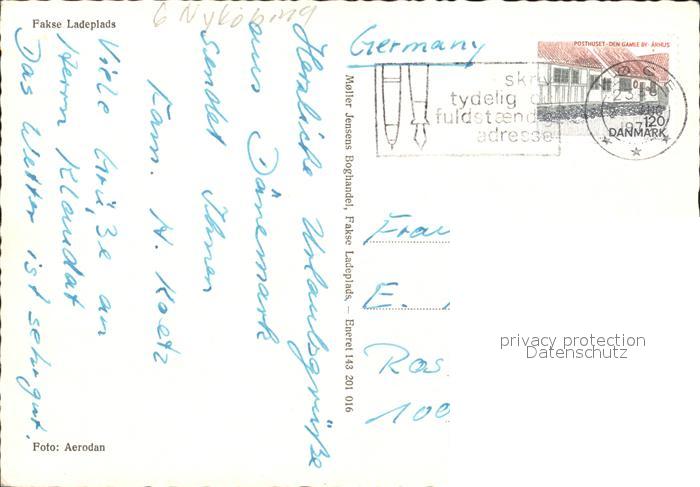 Fakse Ladeplads
6 Nykøbing
Germany
POSTHUSET · DEN GAMLE BY · ÅRHUS
120
DANMARK
skriv
tydelig og
fuldstændig
adresse
Herzliche Urlaubsgrüße
aus Dänemark
sendet Ihnen
Fam. H. Koetz
Viele Grüße an
Herrn Klaudat
Das Wetter ist sehr gut.
Møller Jensens Boghandel, Fakse Ladeplads. – Eneret 143 201 016
Frau
E.
Ras
100
privacy protection
Datenschutz
Foto: Aerodan